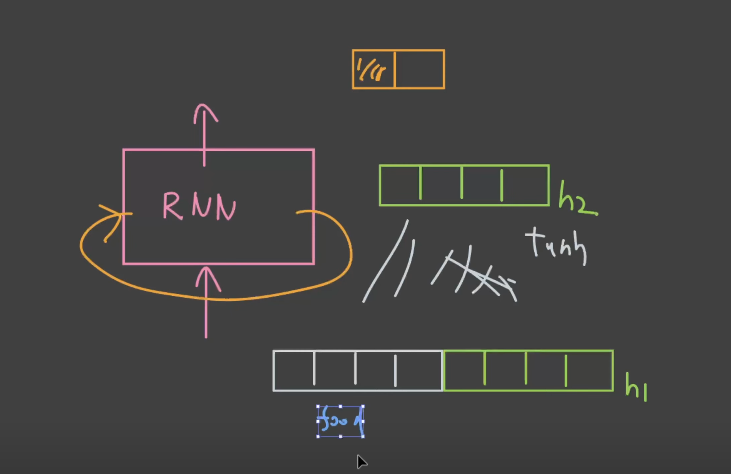 RNN
h2
tanh
h1
food